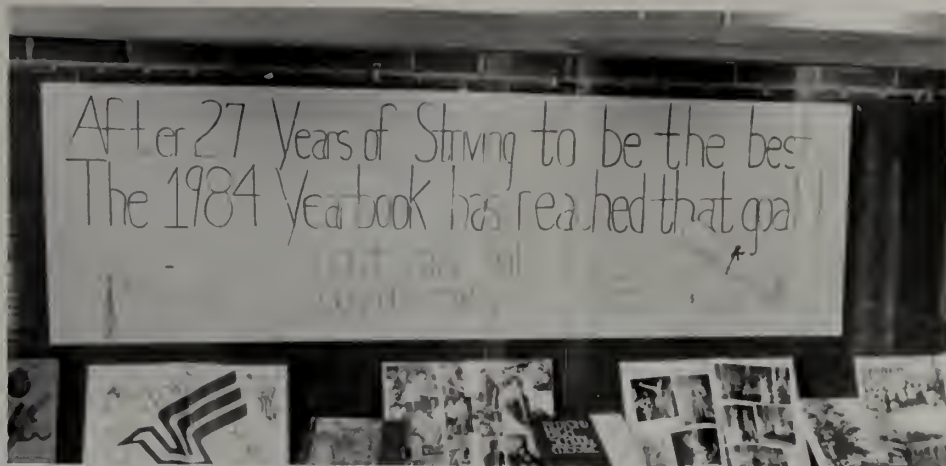 After 27 Years of Striving to be the bes
The 1984 Yearbook has reached that goal